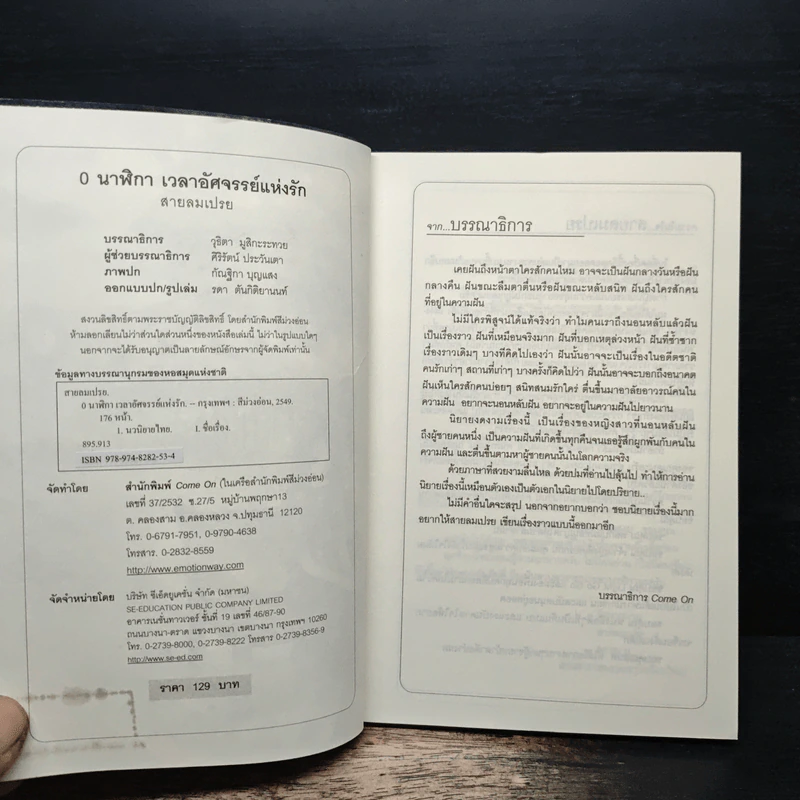 0 นาฬิกา เวลาอัศจรรย์แห่งรัก
สายลมเปรย
บรรณาธิการ วุธิตา มูสิกะระทวย
ผู้ช่วยบรรณาธิการ ศิริรัตน์ ประวันเตา
ภาพปก กัณฐิกา บุญแสง
ออกแบบปก/รูปเล่ม รดา ตันกิติยานนท์
สงวนลิขสิทธิ์ตามพระราชบัญญัติลิขสิทธิ์ โดยสำนักพิมพ์สีม่วงอ่อน
ห้ามลอกเลียนไม่ว่าส่วนใดส่วนหนึ่งของหนังสือเล่มนี้ ไม่ว่าในรูปแบบใดๆ
นอกจากจะได้รับอนุญาตเป็นลายลักษณ์อักษรจากผู้จัดพิมพ์เท่านั้น
ข้อมูลทางบรรณานุกรมของหอสมุดแห่งชาติ
สายลมเปรย.
0 นาฬิกา เวลาอัศจรรย์แห่งรัก. -- กรุงเทพฯ : สีม่วงอ่อน, 2549.
176 หน้า.
1. นวนิยายไทย. I. ชื่อเรื่อง.
895.913
ISBN 978-974-8282-53-4
จัดทำโดย สำนักพิมพ์ Come On (ในเครือสำนักพิมพ์สีม่วงอ่อน)
เลขที่ 37/2532 ซ.27/5 หมู่บ้านพฤกษา13
ต. คลองสาม อ.คลองหลวง จ.ปทุมธานี 12120
โทร. 0-6791-7951, 0-9790-4638
โทรสาร. 0-2832-8559
http://www.emotionway.com
จัดจำหน่ายโดย บริษัท ซีเอ็ดยูเคชั่น จำกัด (มหาชน)
SE-EDUCATION PUBLIC COMPANY LIMITED
อาคารเนชั่นทาวเวอร์ ชั้นที่ 19 เลขที่ 46/87-90
ถนนบางนา-ตราด แขวงบางนา เขตบางนา กรุงเทพฯ 10260
โทร. 0-2739-8000, 0-2739-8222 โทรสาร 0-2739-8356-9
http://www.se-ed.com
ราคา 129 บาท
จาก...บรรณาธิการ
เคยฝันถึงหน้าตาใครสักคนไหม อาจจะเป็นฝันกลางวันหรือฝัน
กลางคืน ฝันขณะลืมตาตื่นหรือฝันขณะหลับสนิท ฝันถึงใครสักคน
ที่อยู่ในความฝัน
ไม่มีใครพิสูจน์ได้แท้จริงว่า ทำไมคนเราถึงนอนหลับแล้วฝัน
เป็นเรื่องราว ฝันที่เหมือนจริงมาก ฝันที่บอกเหตุล่วงหน้า ฝันที่ซ้ำซาก
เรื่องราวเดิมๆ บางทีคิดไปเองว่า ฝันนั้นอาจจะเป็นเรื่องในอดีตชาติ
คนรักเก่าๆ สถานที่เก่าๆ บางครั้งก็คิดไปว่า ฝันนั้นอาจจะบอกถึงอนาคต
ฝันเห็นใครสักคนบ่อยๆ สนิทสนมรักใคร่ ตื่นขึ้นมาอาลัยอาวรณ์คนใน
ความฝัน อยากจะนอนหลับฝัน อยากจะอยู่ในความฝันไปยาวนาน
นิยายงดงามเรื่องนี้ เป็นเรื่องของหญิงสาวที่นอนหลับฝัน
ถึงผู้ชายคนหนึ่ง เป็นความฝันที่เกิดขึ้นทุกคืนจนเธอรู้สึกผูกพันกับคนใน
ความฝัน และตื่นขึ้นตามหาผู้ชายคนนั้นในโลกความจริง
ด้วยภาษาที่สวยงามลื่นไหล ด้วยปมที่อ่านไปลุ้นไป ทำให้การอ่าน
นิยายเรื่องนี้เหมือนตัวเองเป็นตัวเอกในนิยายไปโดยปริยาย..
ไม่มีคำอื่นใดจะสรุป นอกจากอยากบอกว่า ชอบนิยายเรื่องนี้มาก
อยากให้สายลมเปรย เขียนเรื่องราวแบบนี้ออกมาอีก
บรรณาธิการ Come On